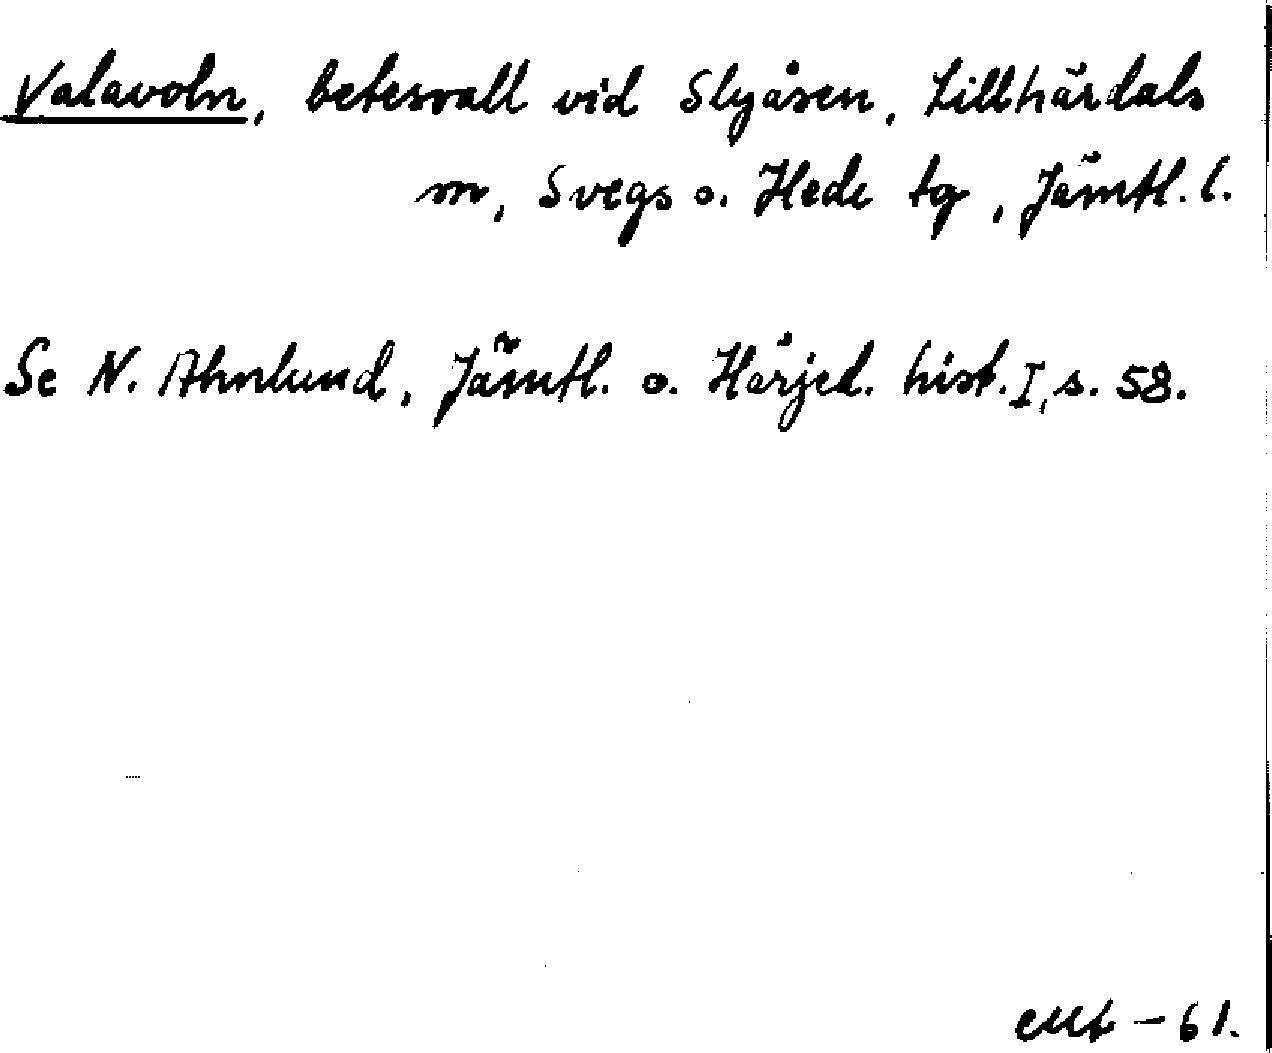 Valavoln, betesvall vid Slyåsen, Lillhärdals
sn, Svegs o. Hede tg, Jämtl. l.
Se N. Ahnlund, Jämtl. o. Härjed. hist. I, s. 58.
– 61.